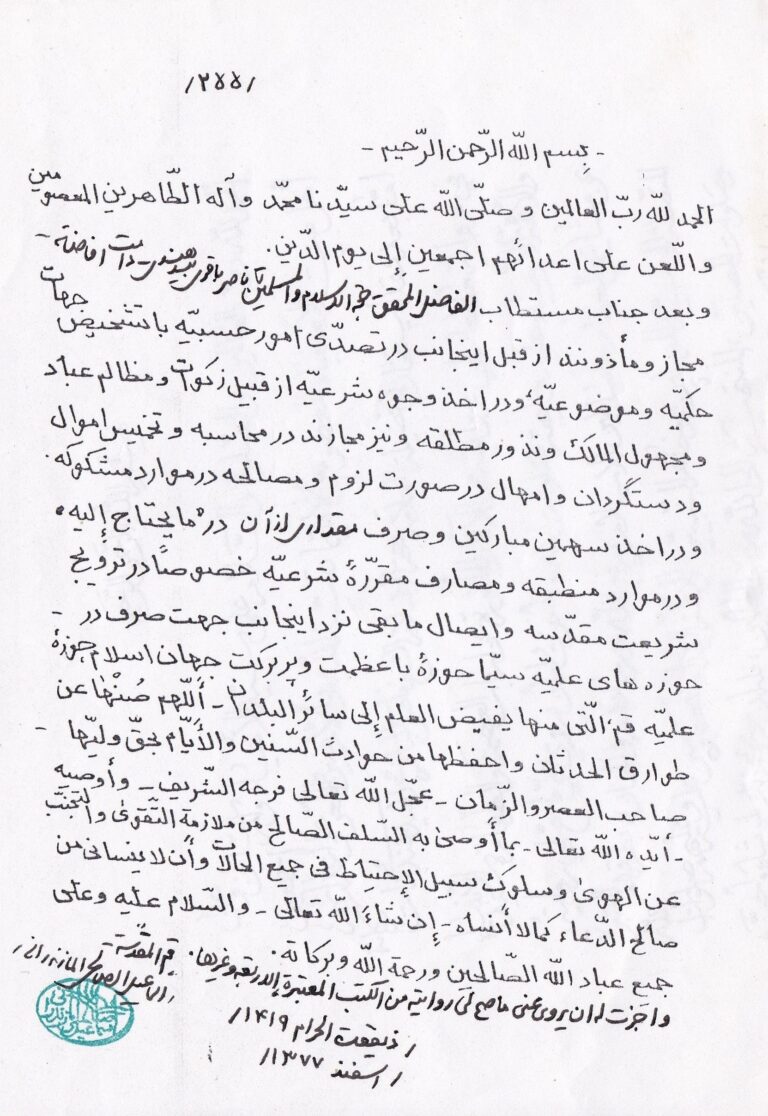 /۲۵۵/
- بِسم اللّه الرّحمن الرّحیم -
الحمد للّه ربّ العالمین و صلّی اللّه علی سیّدنا محمّد وآله الطّاهرین المعصومین
واللّعن علی اعدائهم اجمعین إلی یوم الدّین.
وبعد جناب مستطاب الفاضل المحقق حجة الاسلام والمسلمین ناصر باقری بیدهندی دامت افاضته -
مجاز و مأذونند از قبل اینجانب در تصدّی امور حسبیّه با تشخیص جهات
حکمیّه وموضوعیّه، ودر اخذ وجوه شرعیّه از قبیل زکوات و مظالم عباد
ومجهول المالک ونذور مطلقه ونیز مجازند در محاسبه و تخمیس اموال
ودستگردان وامهال در صورت لزوم ومصالحه در موارد مشکوکه.
ودر اخذ سهمین مبارکین وصرف مقداری از آن در "ما یحتاج إلیه"
ودر موارد منطبقه ومصارف مقرّرهٔ شرعیّه خصوصاً در ترویج
شریعت مقدّسه وایصال ما بقی نزد اینجانب جهت صرف در -
حوزه های علمیّه سیّما حوزهٔ با عظمت وپربرکت جهان اسلام حوزهٔ
علمیّه قم، الّتی منها یفیض العلم إلی سائر البلدان - أللّهم صُنْها عن
طوارق الحدثان واحفظها من حوادث السّنین والأیّام بحقّ ولیّها -
صاحب العصر والزّمان - عجّل اللّه تعالی فرجه الشّریف - وأوصیه
- أیّده اللّه تعالی - بما أوصیٰ به السّلف الصّالح من ملازمة التّقویٰ والتجنّب
عن الهویٰ وسلوک سبیل الإحتیاط فی جمیع الحالات وأن لا ینسانی من
صالح الدّعاء کما لا أنساه - إن شاء اللّه تعالی - والسّلام علیه وعلی
جمیع عباد اللّه الصّالحین ورحمة اللّه وبرکاته.
واجزت له ان یروی عنی ما صح لی روایته من الکتب المعتبرة الاربعة وغیرها. قم المقدّسة
اسماعیل الصالحی المازندرانی
/ ذیقعدة الحرام ۱۴۱۹/
/ اسفند ۱۳۷۷/